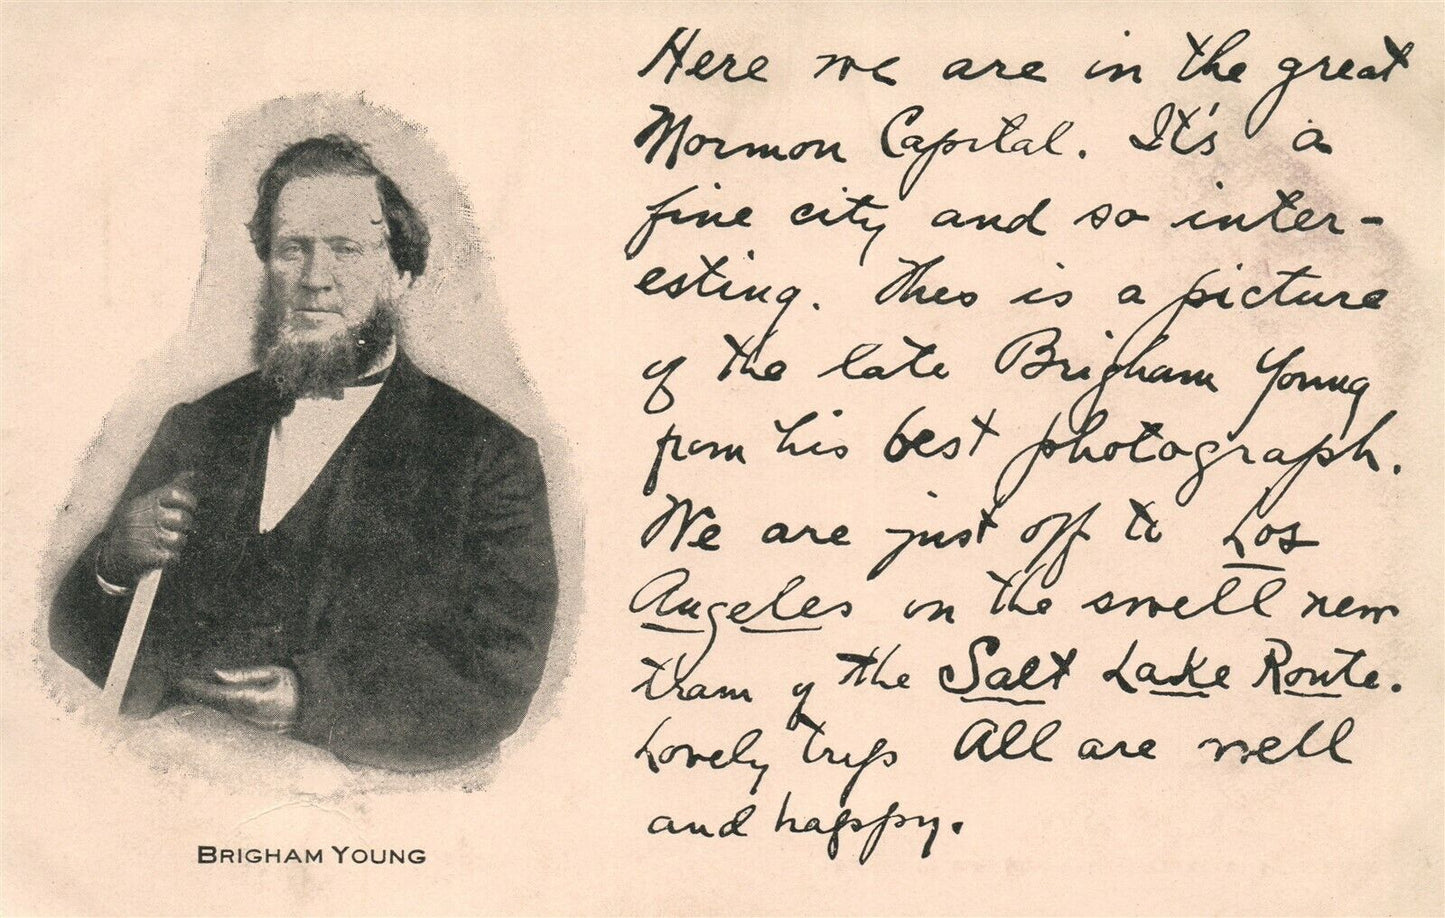 Here we are in the great
Mormon Capital. It's a
fine city and so inter-
esting. This is a picture
of the late Brigham Young
from his best photograph.
We are just off to Los
Angeles on the swell new
train of the Salt Lake Route.
Lovely trip All are well
and happy.
BRIGHAM YOUNG